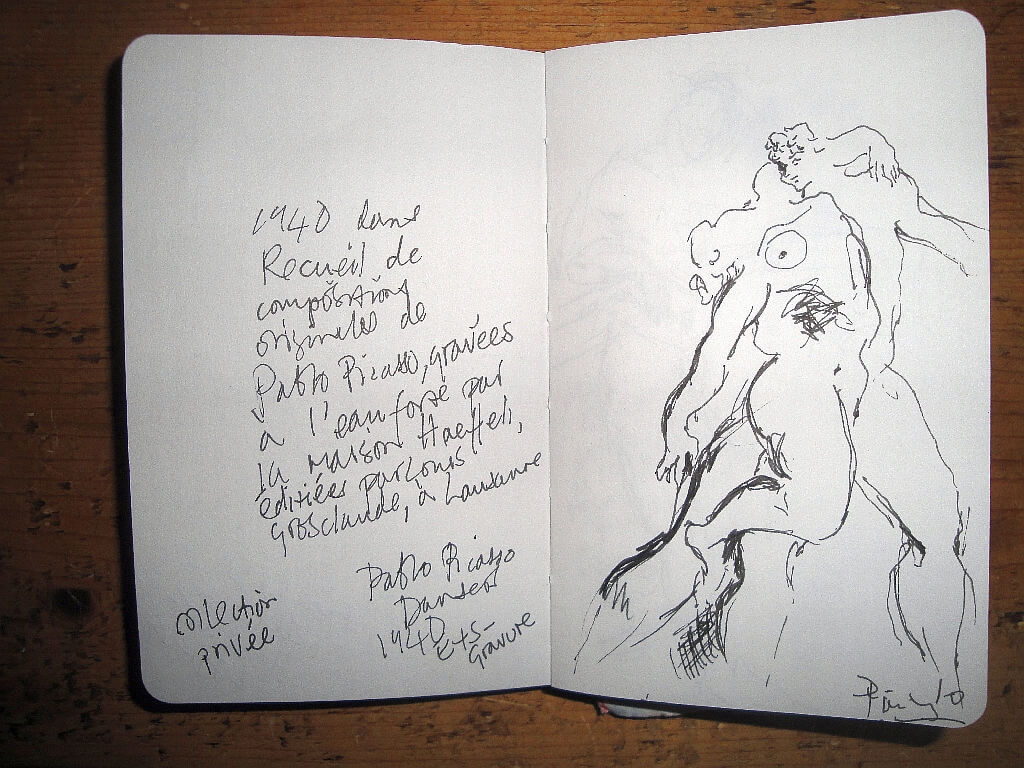 1940 dans
Recueil de
compositions
originales de
Pablo Picasso, gravées
a l'eau forte par
la maison Haefeli,
éditiées par Louis
Grosclaude, à Lausanne
Pablo Picasso
Danses
1940
Gravure
collection
privée